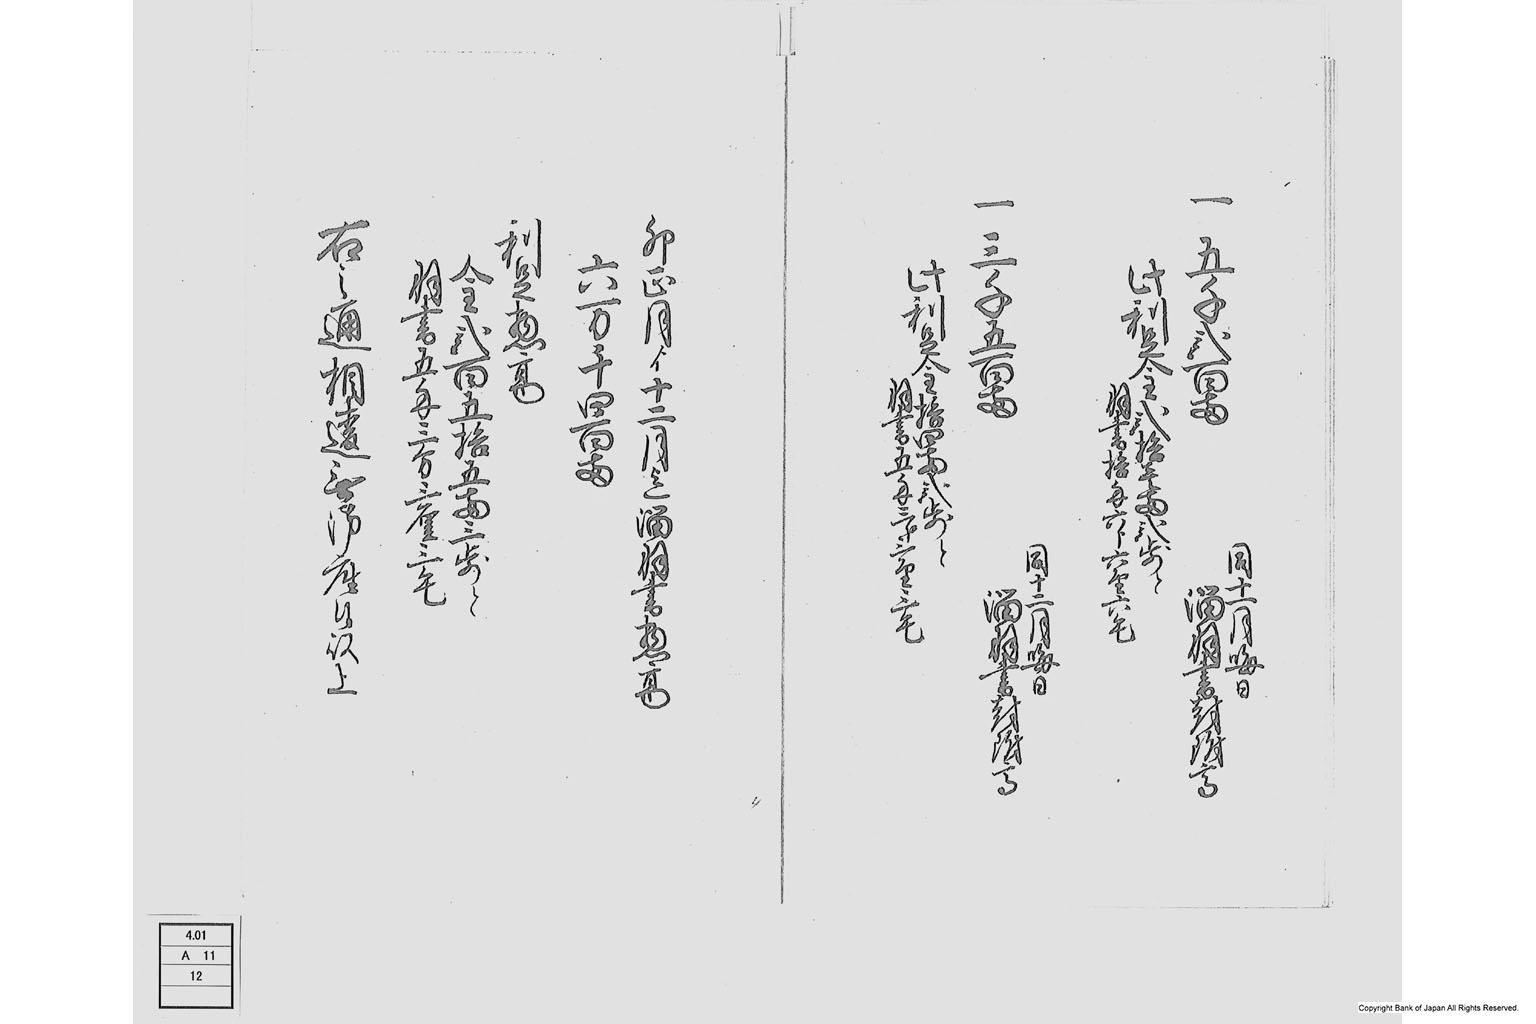 一五千弐百両
同十一月晦日
溜羽書封附高
此利足金弐拾壱両弐歩と
羽書拾匁六分六厘六毛
一三千五百両
同十二月晦日
溜羽書封附高
此利足金拾四両弐歩と
羽書五匁三分三厘三毛
卯正月ゟ十二月迄溜羽書惣高
六万千四百両
利足惣高
金弐百五拾五両三歩と
羽書五匁三分三厘三毛
右之通相違無御座候以上
4.01
A 11
12
Copyright Bank of Japan All Rights Reserved.